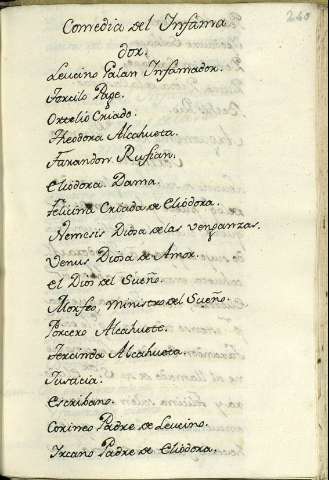 240
Comedia del Infama
dor.
Leucino Galan Infamador.
Forcilo Page.
Ortelio Criado.
Theodora Alcahueta.
Farandon Rufian.
Eliodora Dama.
Felicina Criada de Eliodora.
Nemesis Diosa de las venganzas.
Venus Diosa de Amor.
El Dios del Sueño.
Morfeo, Ministro del Sueño.
Porcero Alcahuete.
Tercinda Alcahueta.
Justicia.
Escribano.
Corineo Padre de Leucino.
Ircano Padre de Eliodora.